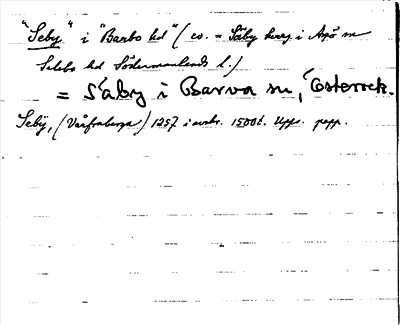 "Seby" i "Barbo hd" (ev. = Säby herrg. i Aspö sn
Selebo hd Södermanlands l.)
= Säby i Barva sn, Österrek.
Seby, (Vårfruberga) 1257 i avskr. 1500t. Upps. papp.